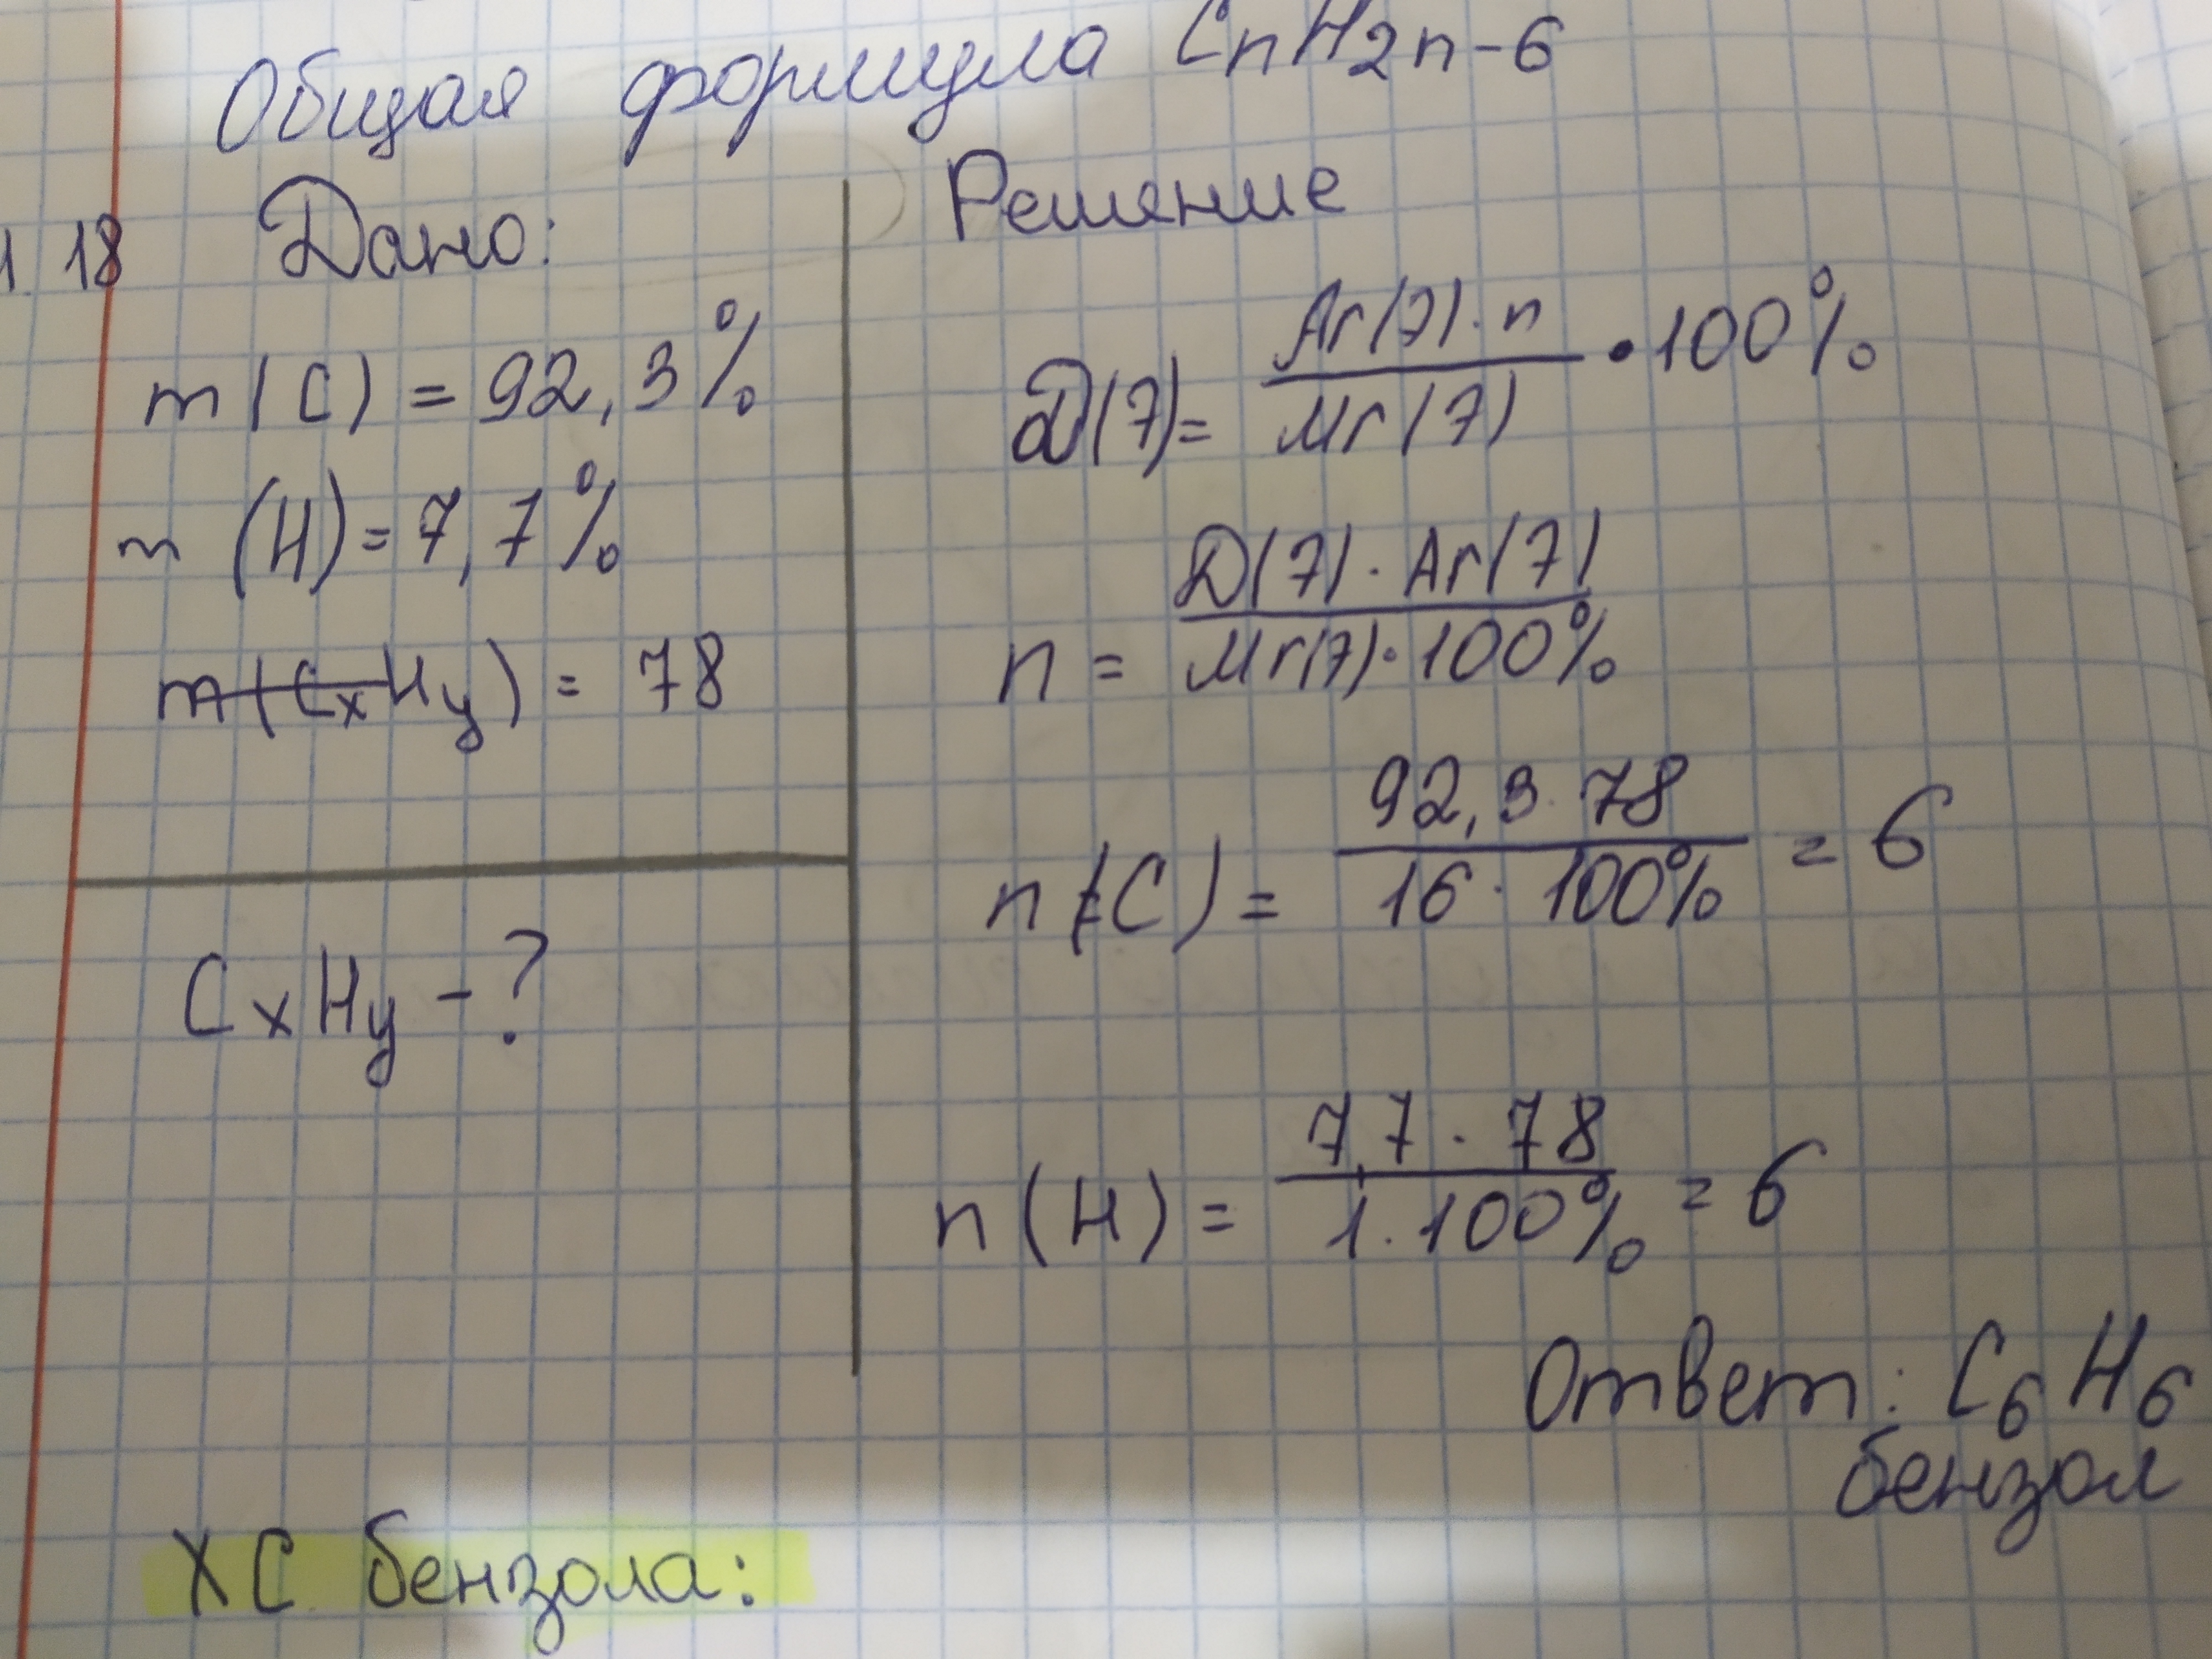 Общая формула CnH2n-6
1. 18 Дано:
m(C) = 92,3%
m (H) = 7,7%
m(CxHy) = 78
CxHy - ?
Решение
D(7) = Ar(7) · n / Mr(7) · 100%
n = D(7) · Ar(7) / Mr(7) · 100%
n(C) = 92,3 · 78 / 16 · 100% = 6
n(H) = 7,7 · 78 / 1 · 100% = 6
Ответ: C6H6
бензол
ХС бензола: